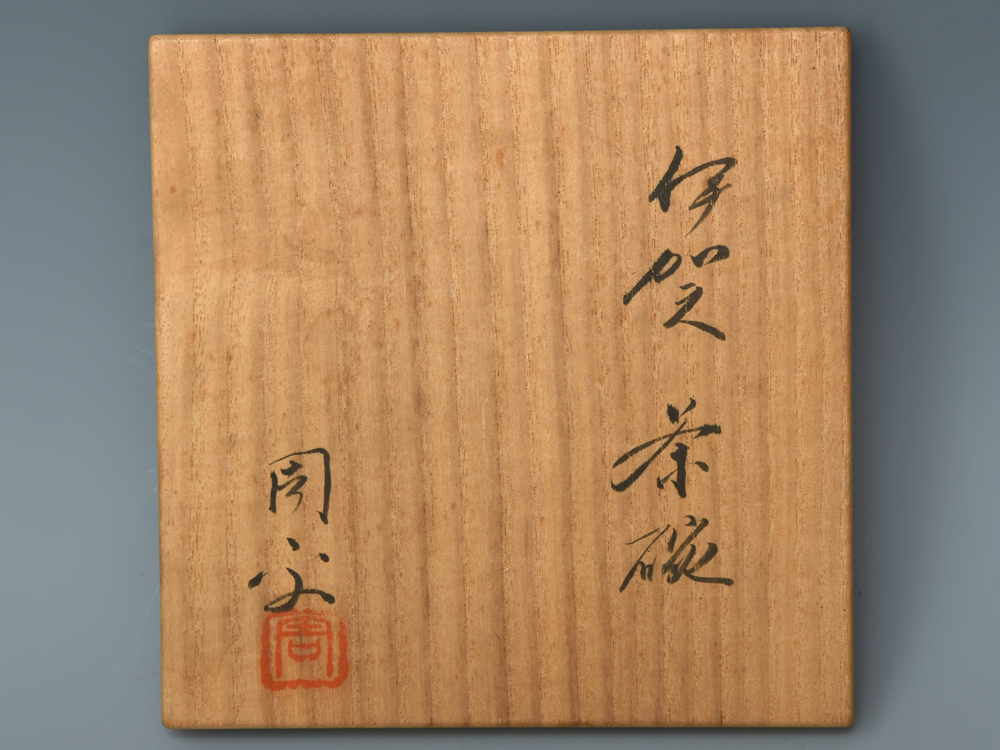 伊賀 茶碗
周
周